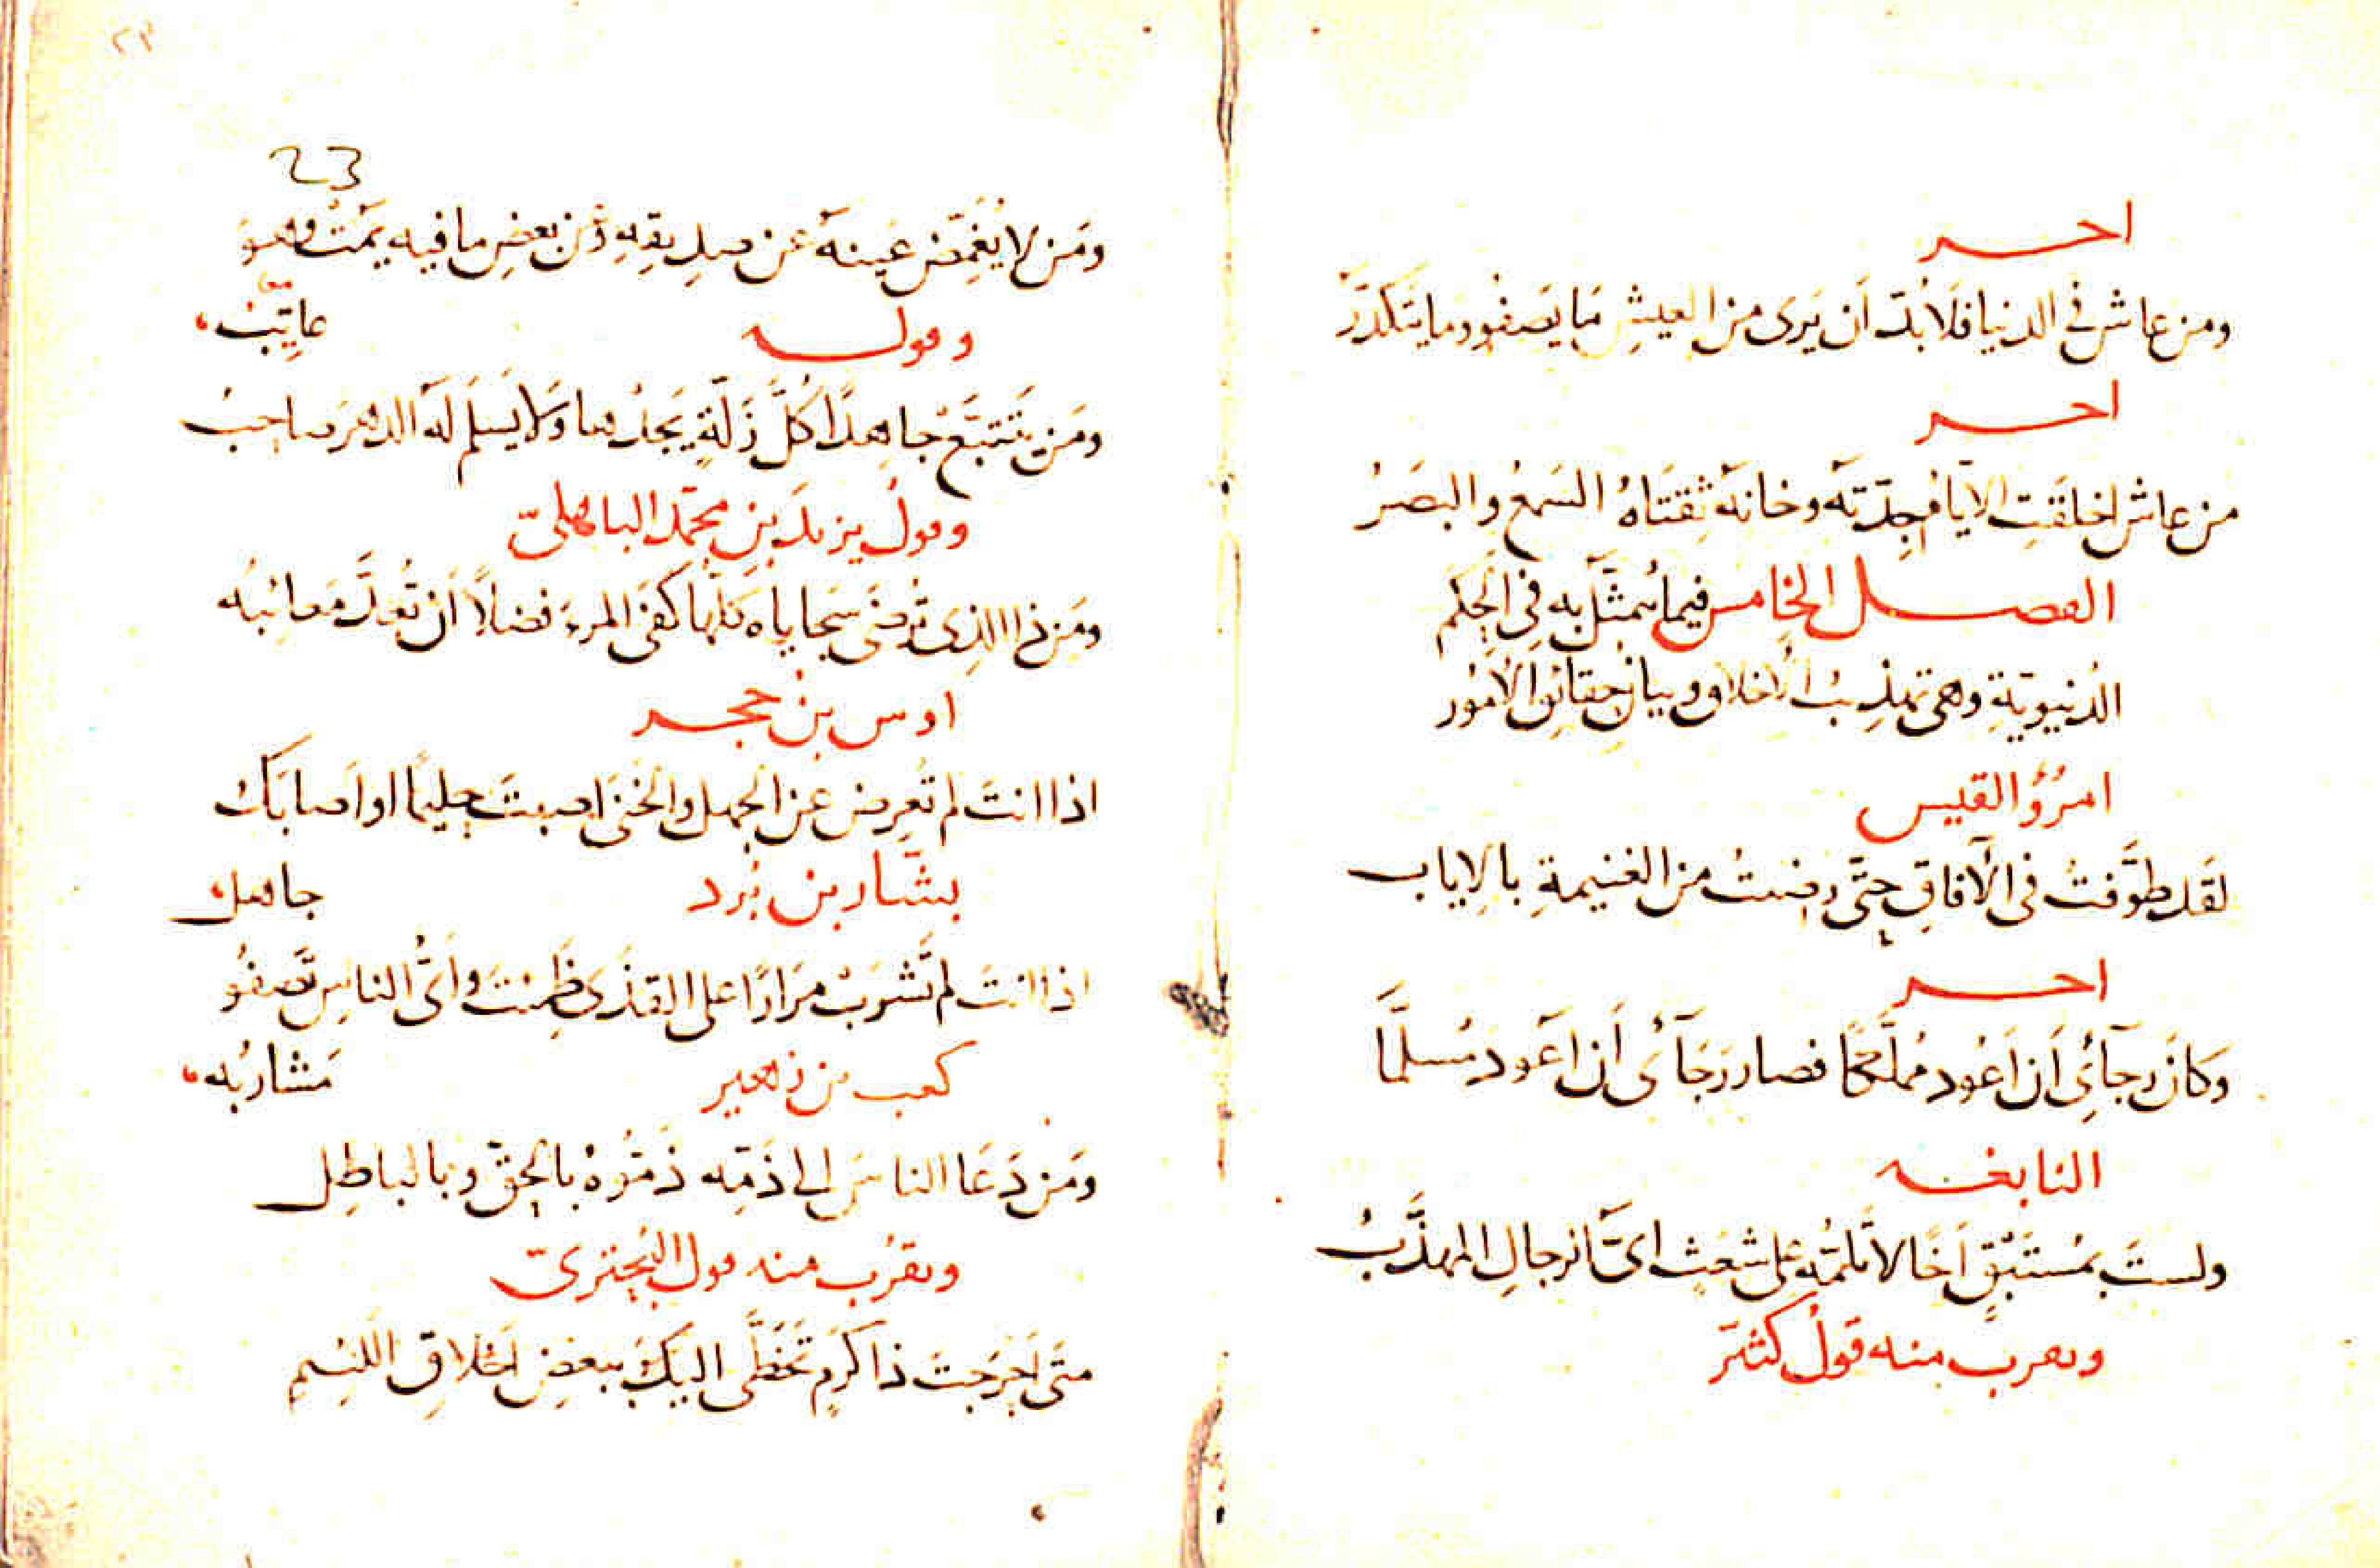 اخر
ومن عاش في الدنيا فلا بدّ أن يَرى من العيشِ مَا يَصفُو وما يتكدَّرَ
اخر
من عاش اخلقَتِ الايامُ جِدّتَه وخانَه ثِقتَاهُ السَمعُ والبصَرُ
الفصل الخامس فيما يُتمثَّل به في الحِكَم
الدُنيويّةِ وهى تهذيبُ الأخلاق وبيان حقائق الأمُور
امرُؤ القيس
لقَد طوَّفتُ فى الآفاقِ حتَّى رضيتُ من الغنيمةِ بالإياب
اخر
وَكانَ رجَآئِى أَن أَعُود مُملَّكًا فصار رَجَآئى أَن أَعود مُسلَّمَا
النابغه
ولستَ بمُستَبْقٍ أخًا لا تَلمُّه على شعَثٍ اىُّ الرجالِ المهذَّبُ
ويقرب منه قولُ كثيّر
٢٣
23
ومَن لا يُغمِّض عَينهَ عن صدِيقِهِ وَعن بَعضِ ما فيه يمُتْ وهوَ
عاتِبُ
وقوله
ومَن يَتَتبَّعْ جاهِدًا كُلَّ زَلّةٍ يَجِدْها وَلا يَسلَم لَه الدهرَ صاحِبُ
وقولُ يزيدَ بنِ محمّد الباهلىّ
ومَن ذا الذِى تُرضَى سَجاياه كلّها كفَى المرءَ فضلاً أن تُعدَّ مَعائبُه
اوس بن حجر
اذا انتَ لم تُعرِض عن الجهل والخَنَى اصبتَ حليمًا او اَصابَكَ
جاهل
بشّار بن بُرد
اذا انتَ لم تَشرَبْ مرَارًا على القذَى ظمِئتَ وأىُّ الناسِ تَصفُو
مَشاربُه
كعب بن زهير
ومَن دَعَا الناسَ الى ذَمّه ذَمُّوهُ بالحقّ وبالباطِل
ويقرُب منه قول البُحترىّ
متَى أحرَجتَ ذا كَرَمٍ تَخَطَّى اليكَ ببعضِ أخلاقِ اللئيم